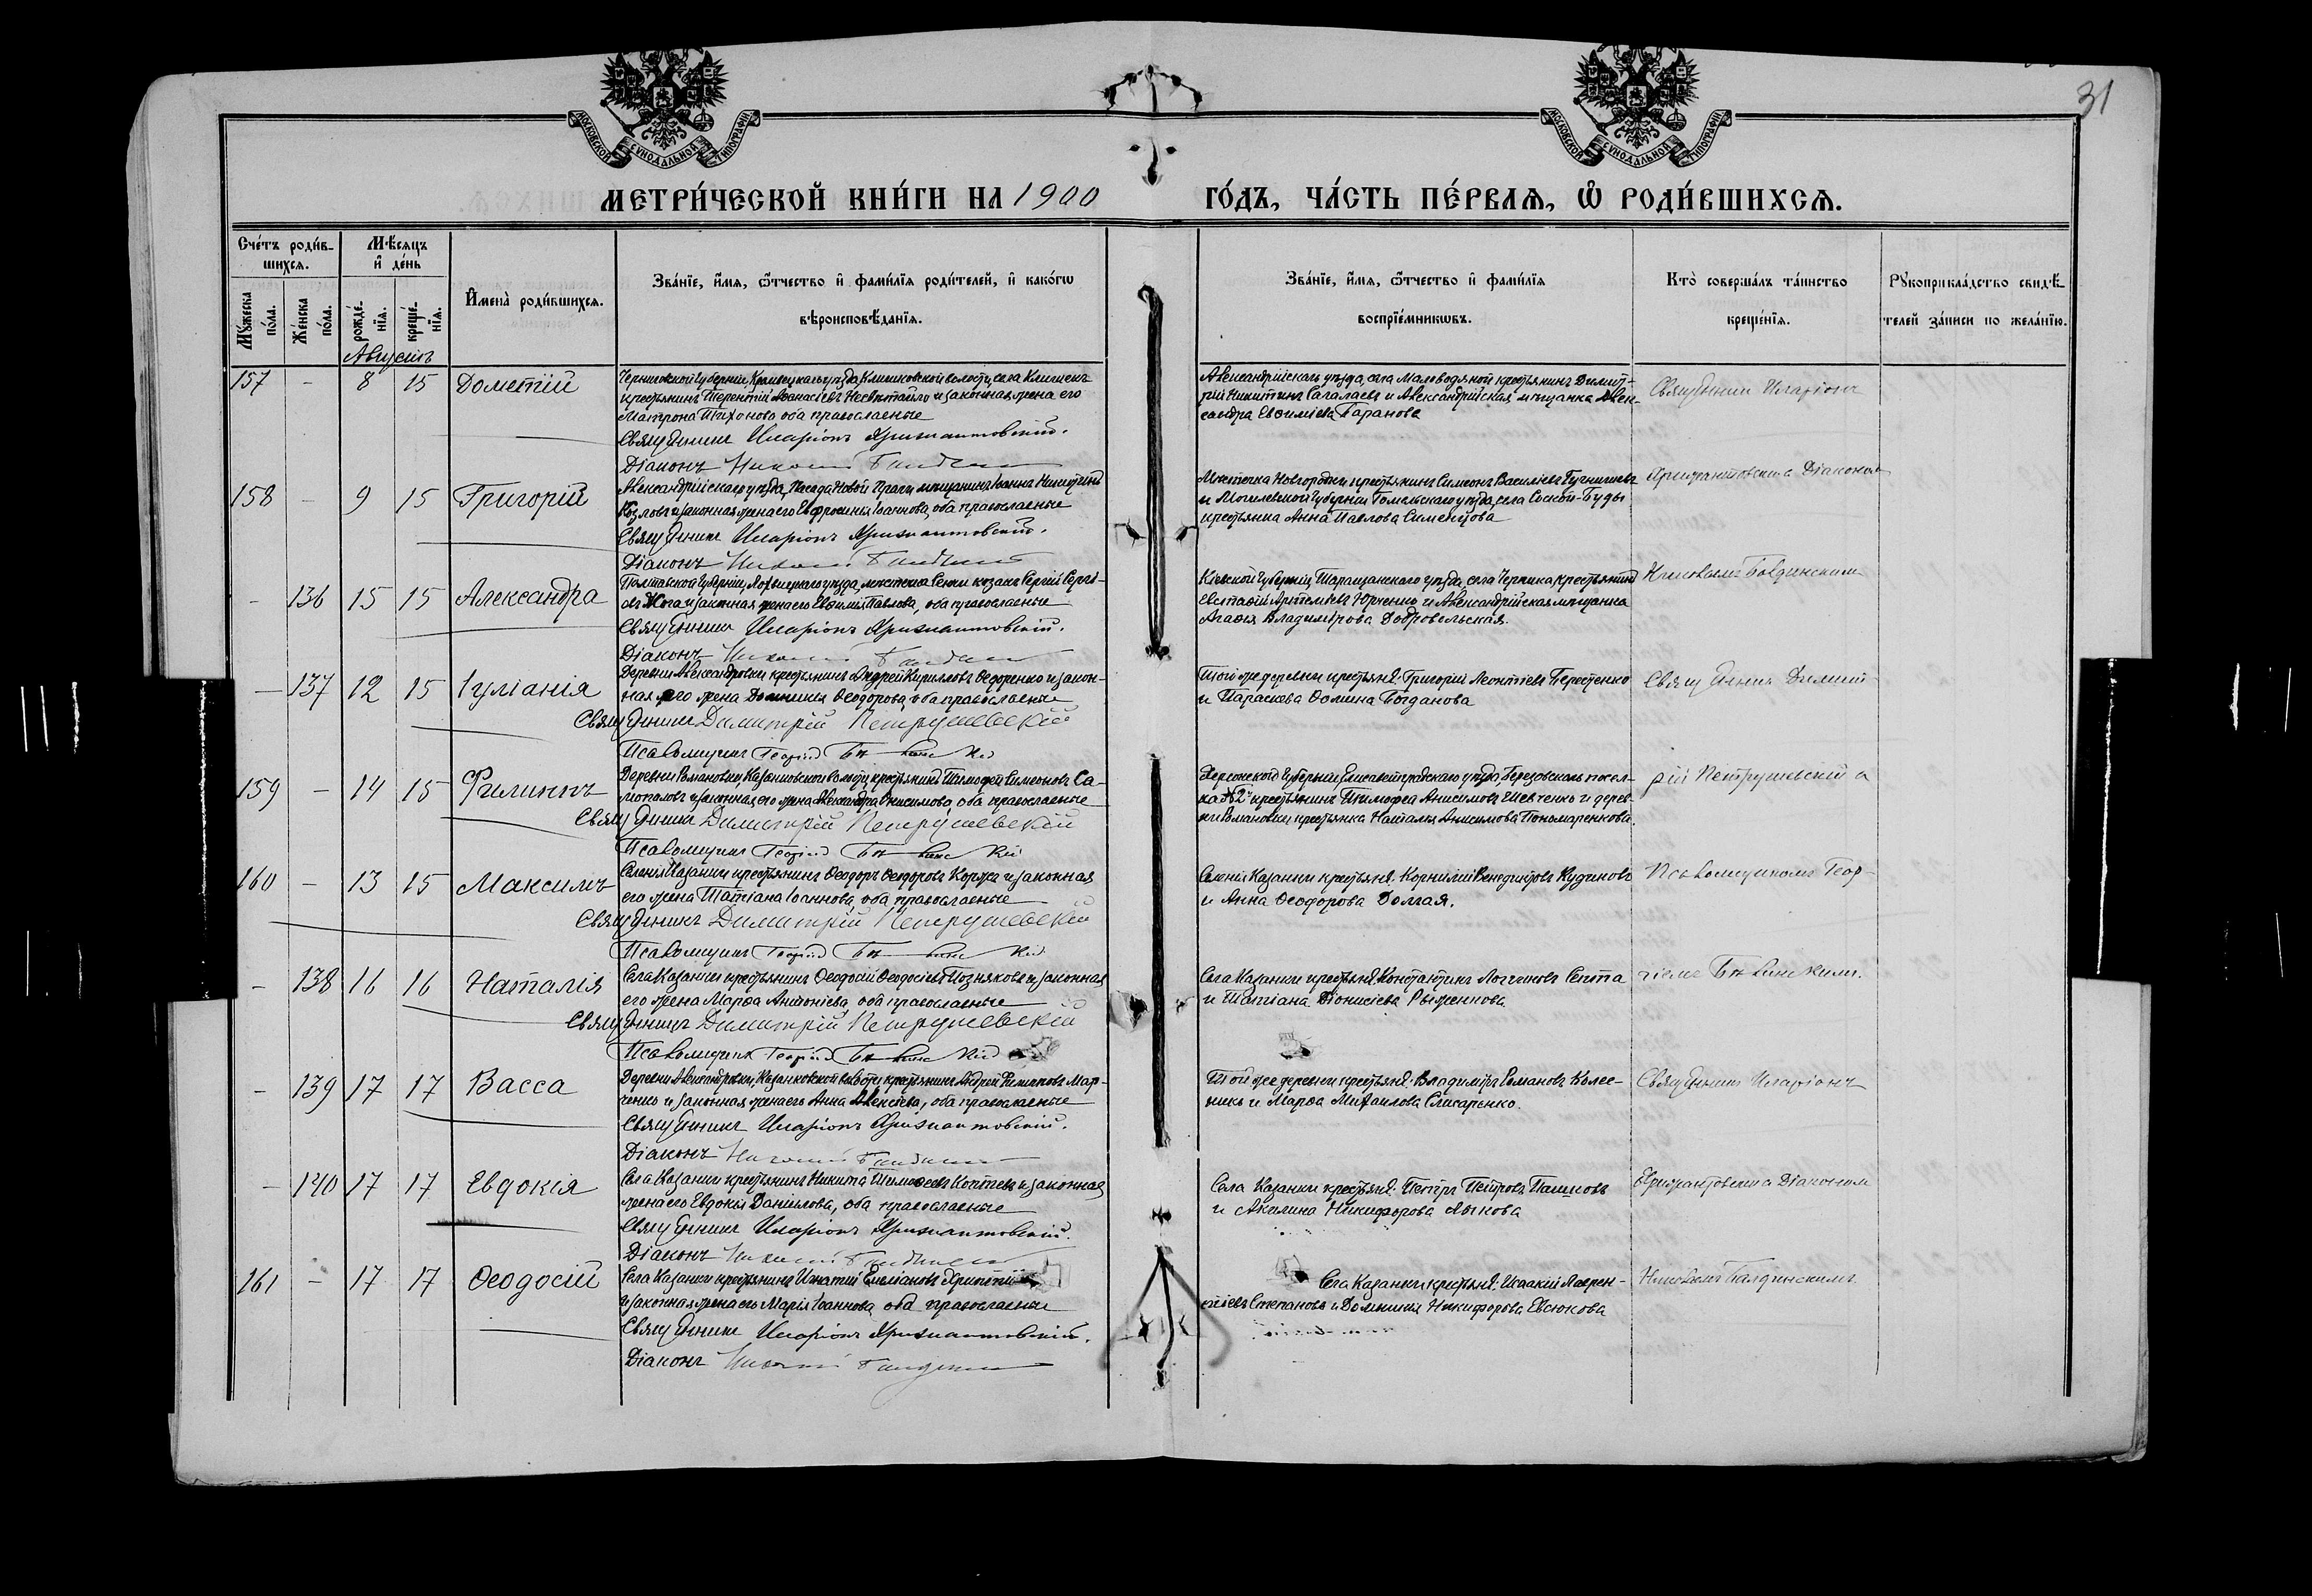 31
МОСКОВСКОЙ СѴНОДАЛЬНОЙ ТИПОГРАФІИ
МОСКОВСКОЙ СѴНОДАЛЬНОЙ ТИПОГРАФІИ
МЕТРИ́ЧЕСКОЙ КНИ́ГИ НА 1900 ГО́ДЪ, ЧА́СТЬ ПЕ́РВАѦ, Ѽ РОДИ́ВШИХСѦ.
Сче́тъ роди́в-
шихсѧ.
Мѣ́сѧцъ
и҆ де́нь
Мꙋ́жеска по́ла.
Же́нска по́ла.
рожде́-
нїѧ.
креще́-
нїѧ.
И҆мена̀ роди́вшихсѧ.
Зва́нїе, и҆́мѧ, ѻ҆́тчество и҆ фами́лїѧ роди́телей, и҆ како́гѡ
вѣроисповѣ́данїѧ.
Зва́нїе, и҆́мѧ, ѻ҆́тчество и҆ фами́лїѧ
воспрїе́мникѡвъ.
Кто̀ соверша́лъ та́инство
креще́нїѧ.
Рꙋкоприкла́дство свидѣ́-
телей за́писи по жела́нїю.
Августъ
157 - 8 15 Дометій
Черниговской Губерніи, Кролевецкаго уѣзда, Клишковской волости, села Клишекъ
крестьянинъ Терентій Аѳанасіевъ Несвѣтайло и законная жена его
Матрона Тихонова оба православные
Священникъ Иларіонъ Хрисанѳовскій.
Діаконъ Николай
Александрійскаго уѣзда, села Маловодяной крестьянинъ Димит-
рій Никитинъ Сагалаевъ и Александрійская мѣщанка Алек-
сандра Евѳиміева Баранова
Священникъ Иларіонъ
158 - 9 15 Григорій
Александрійскаго уѣзда, Посада Новой Праги мѣщанинъ Іоаннъ Никитинъ
Козловъ и законная жена его Евфросинія Іоаннова, оба православные
Священникъ Иларіонъ Хрисанѳовскій.
Діаконъ Николай
Мѣстечка Новгородки крестьянинъ Симеонъ Василіевъ
и Могилевской Губерніи Гомельскаго уѣзда, села
крестьянка Анна Павлова Сименцова
Діакономъ
- 136 15 15 Александра
Полтавской Губерніи, Лохвицкаго уѣзда, мѣстечка Сенчи козакъ Сергій Сергі-
евъ и законная жена его Евѳимія Павлова, оба православные
Священникъ Иларіонъ Хрисанѳовскій.
Діаконъ Николай
Кіевской Губерніи, Таращанскаго уѣзда, села Черпина крестьянинъ
Евстаѳій Артеміевъ Юрченко и Александрійская мѣщанка
Агаѳія Владимірова Добровольская.
Николаемъ
- 137 12 15 Іуліанія
Деревни Александровки крестьянинъ Андрей Кирилловъ Ѳедоренко и закон-
ная его жена Домникія Ѳеодорова, оба православные
Священникъ Димитрій Петрушевскій
Псаломщикъ Георгій
Той же деревни крестьян. Григорій Леонтіевъ Перетенко
и Параскева Ѳомина Богданова
Священникъ Димит-
159 - 14 15 Филиппъ
Деревни Романовки, Казанковской волости, крестьянинъ Тимоѳей Симеоновъ Са-
мополовъ и законная его жена Александра Анисимова, оба православные
Священникъ Димитрій Петрушевскій
Псаломщикъ Георгій
Херсонской Губерніи, Елисаветградскаго уѣзда, Березовскаго посел-
ка №2й крестьянинъ Тимоѳей Анисимовъ Шевченко и дерев-
ни Романовки крестьянка Наталія Анисимова Пономаренкова.
рій Петрушевскій съ
160 - 13 15 Максимъ
Селенія Казанки крестьянинъ Ѳеодоръ Ѳеодоровъ Коржъ и законная
его жена Татіана Іоаннова, оба православные
Священникъ Димитрій Петрушевскій
Псаломщикъ Георгій
Селенія Казанки крестьян. Корнилій Венедиктовъ Кудиновъ
и Анна Ѳеодорова Долгая.
Псаломщикомъ Геор-
- 138 16 16 Наталія
Села Казанки крестьянинъ Ѳеодосій Ѳеодосіевъ Позняковъ и законная
его жена Марѳа Антоніева, оба православные
Священникъ Димитрій Петрушевскій
Псаломщикъ Георгій
Села Казанки крестьян. Константинъ Логгиновъ Сепета
и Татіана Діонисіева Рыженкова
гіемъ
- 139 17 17 Васса
Деревни Александровки, Казанковской волости крестьянинъ Андрей Филиповъ Мар-
ченко и законная жена его Анна Алексіева, оба православные
Священникъ Иларіонъ Хрисанѳовскій.
Діаконъ Николай
Той же деревни крестьян. Владиміръ Романовъ Колес-
никъ и Марѳа Михаилова Слисаренко.
Священникъ Иларіонъ
- 140 17 17 Евдокія
Села Казанки крестьянинъ Никита Тимоѳеевъ Коптевъ и законная
жена его Евдокія Даніилова, оба православные
Священникъ Иларіонъ Хрисанѳовскій.
Діаконъ Николай
Села Казанки крестьян. Петръ Петровъ Пашковъ
и Акилина Никифорова Лыкова
Діакономъ
161 - 17 17 Ѳеодосій
Села Казанки крестьянинъ Игнатій Емеліановъ
и законная жена его Марія Іоаннова, оба православные
Священникъ Иларіонъ Хрисанѳовскій.
Діаконъ Николай
Села Казанки крестьян. Исаакій Лаврен-
тіевъ Степановъ и Домникія Никифорова Евсюкова
Николаемъ